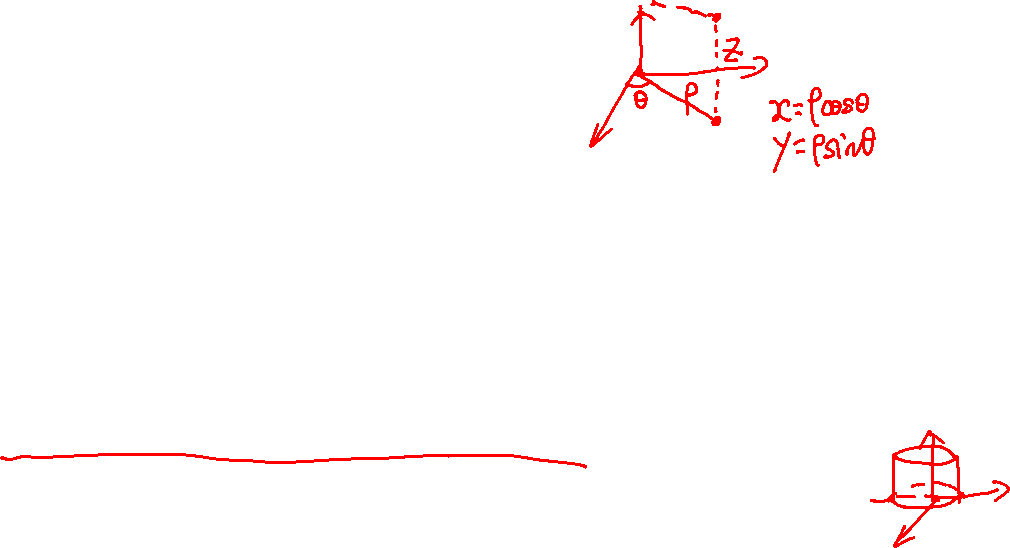 z
θ
ρ
x=ρcosθ
y=ρsinθ